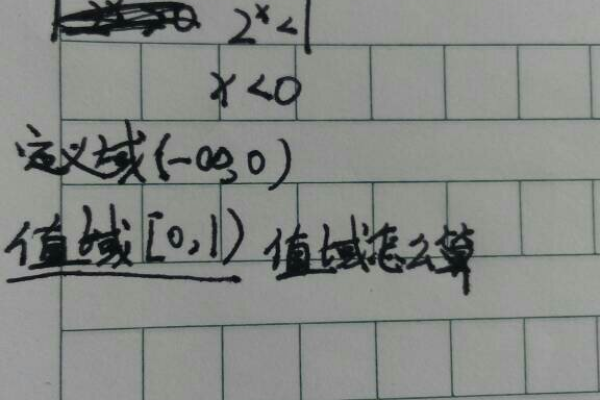 2ˣ<1
x<0
定义域(-∞,0)
值域[0,1) 值域怎么算